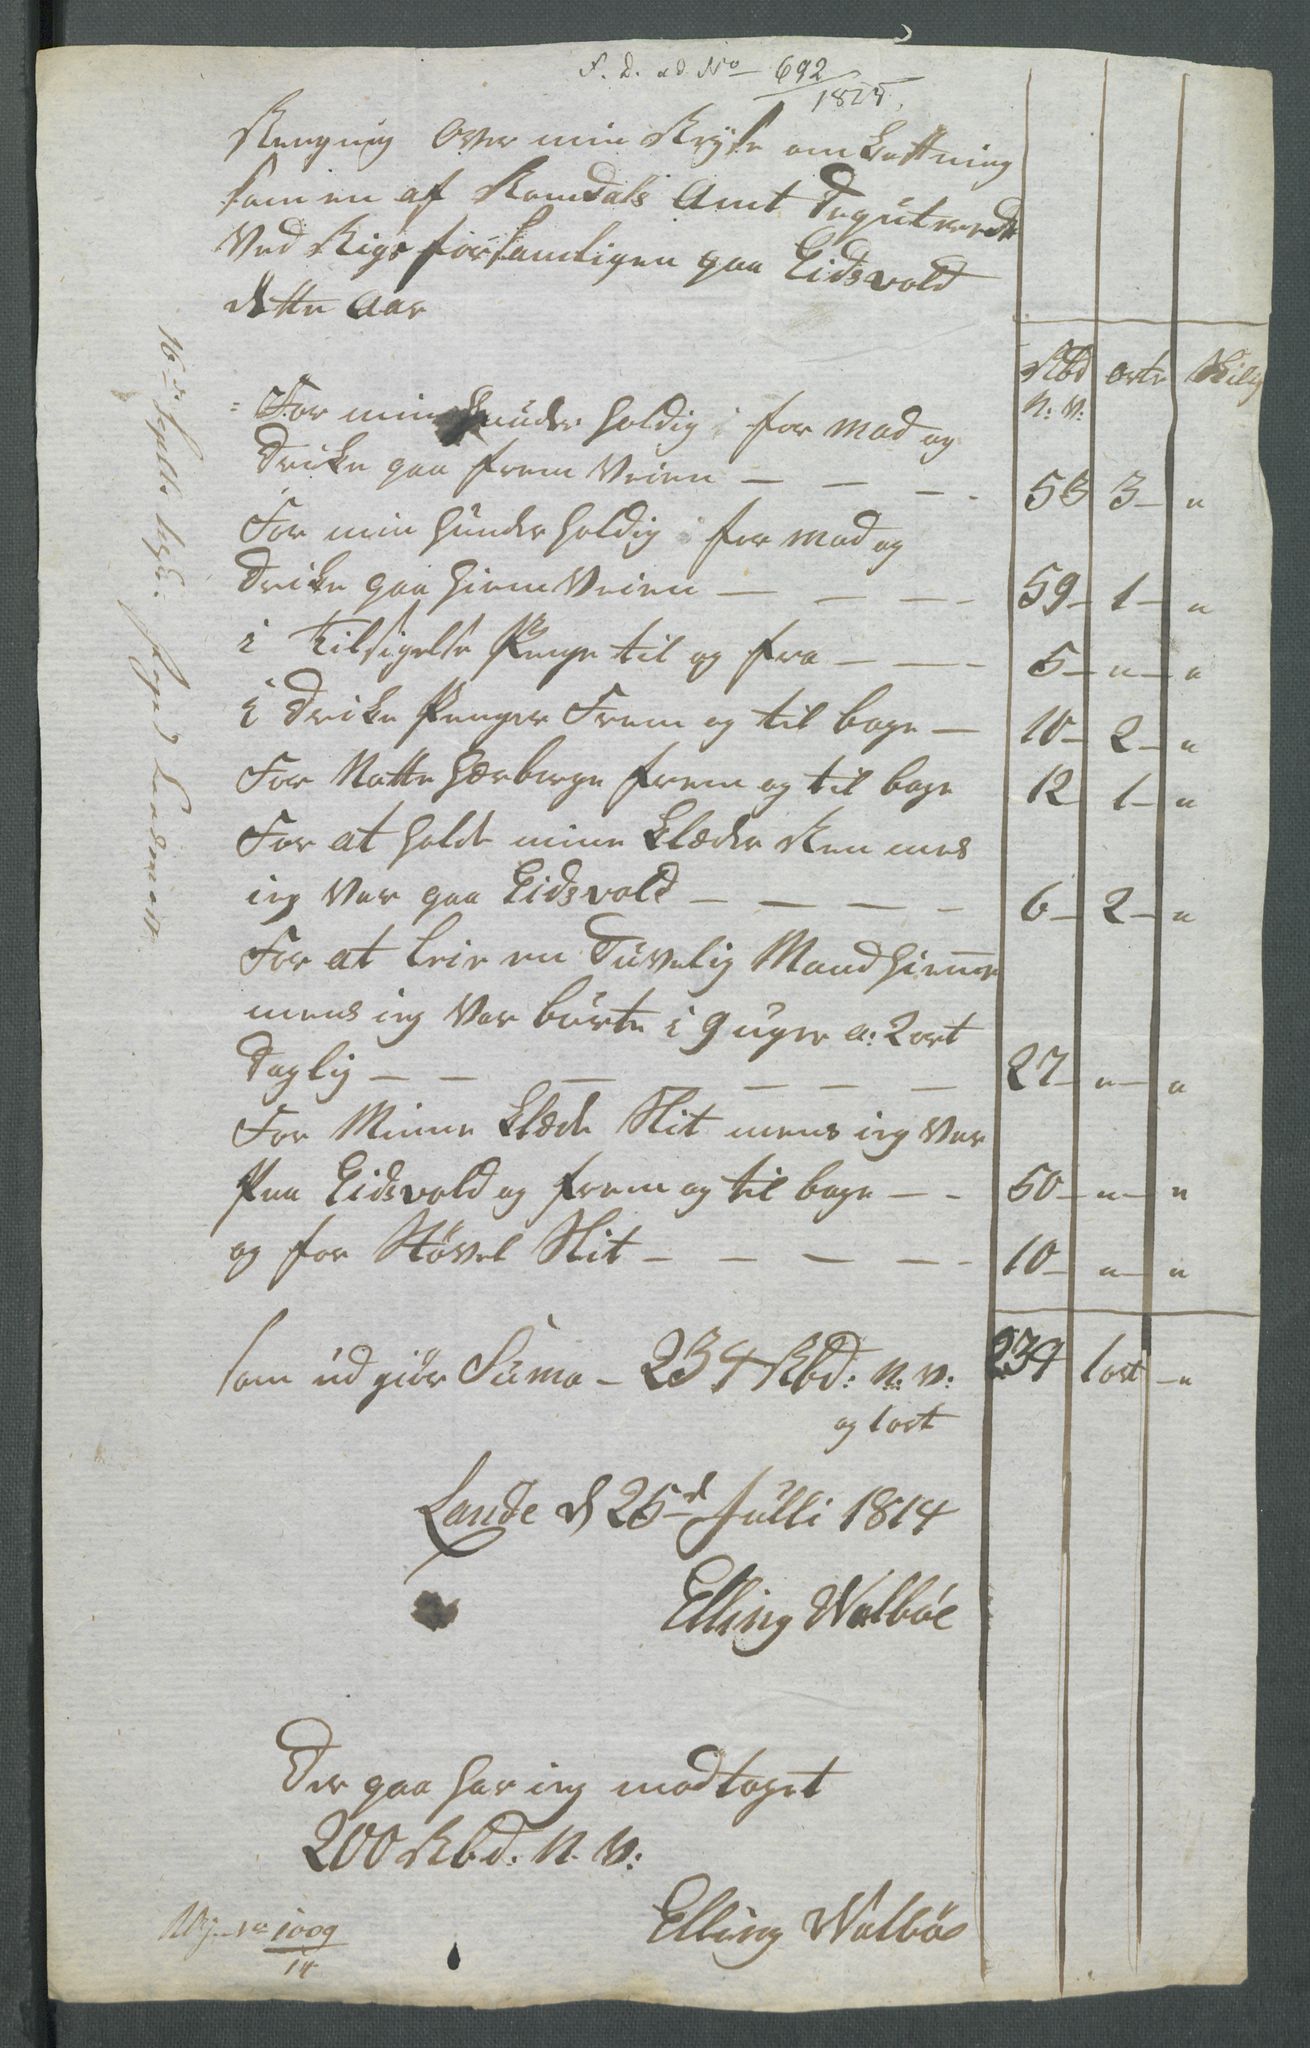 F. D. ad No 692/1825.
Regning Over min Rejse om kostning
som en af Romdals Amt Deputerede
Ved Rigs forsamligen paa Eidsvold
dette Aar
Rbd orter Skilig
N: V:
For min hunder holdig i for mad og
Drike paa frem Veien — — — - 53 3 — "
For min hunder holdig i for mad og
Drike paa hiem Veien — — — - 59 — 1 — "
i Tilsigelse Penge til og fra — — - 5 — " — "
i Drike Penger Frem og til bage — 10 — 2 — "
For Natte Herberge frem og til bage 12 1 — "
For at holde mine klæder Ren mens
ieg Var paa Eidsvold — — — - 6 — 2 — "
For at leie en Duvelig Mand hieme
mens ieg Var burte i 9 uger a: 2 ort
Daglig — — — — — — 27 — " — "
For Minne klæde Slit mens ieg Var
Paa Eidsvold og frem og til bage — - 50 — " — "
og for Stövel Slit — — — — - 10 — " — "
som ud giör Suma — 234 Rbd: N: V: 234 1 ort — "
og 1 ort
Lande d 25d Julli 1814
Elling Walböe
Der paa har ieg modtaget
200 Rbd: N. V:
Elling Walböe
No 1009/14